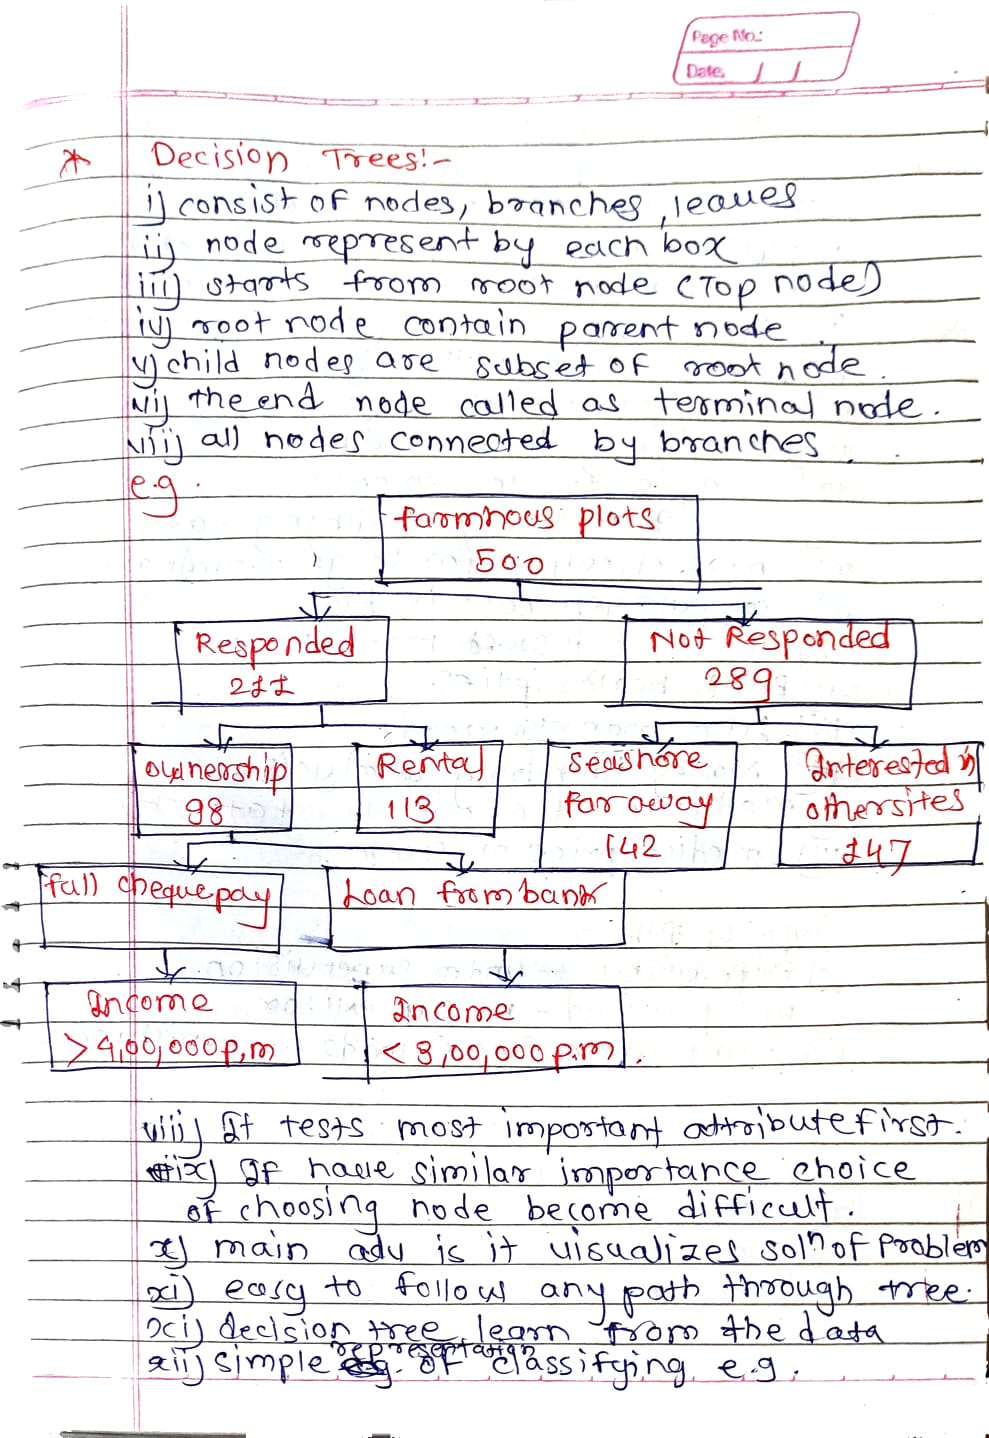 Page No.:
Date. / /
* Decision Trees:-
i) consist of nodes, branches, leaves
ii) node represent by each box
iii) starts from root node (Top node)
iv) root node contain parent node
v) child nodes are subset of root node.
vi) the end node called as terminal node.
vii) all nodes connected by branches.
e.g.
farmhous plots
500
Responded
211
Not Responded
289
ownership
98
Rental
113
Seashore
far away
142
Interested in
other sites
147
full cheque pay
Loan from bank
Income
> 4,00,000 p.m
Income
< 3,00,000 p.m.
viii) It tests most important attribute first.
ix) If have similar importance choice
of choosing node become difficult.
x) main adv is it visualizes soln of Problem
xi) easy to follow any path through tree.
xi) decision tree learn from the data
xii) simple representation of classifying e.g.